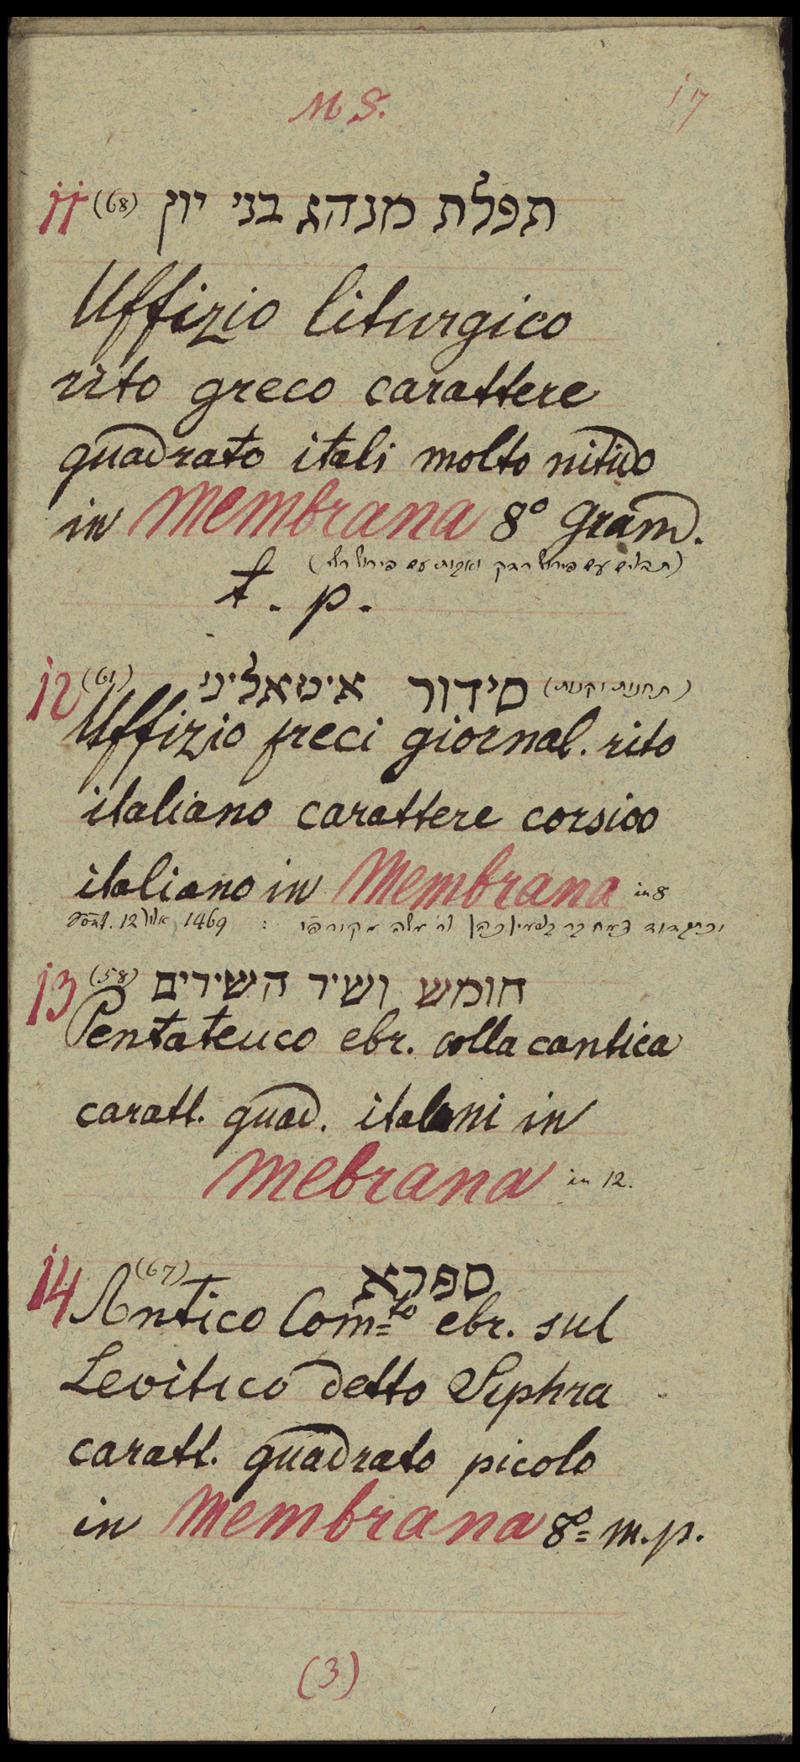 MS.
17
11 (68) תפלת מנהג בני יון
Uffizio liturgico
rito greco carattere
quadrato itali molto nitido
in Membrana 8º gram.
t. p.
12 (61) סידור איטאליני
Uffizio preci giornal. rito
italiano carattere corsivo
italiano in Membrana in 8
12 1469
13 (58) חומש ושיר השירים
Pentateuco ebr. colla cantica
caratt. quad. italani in
Mebrana in 12.
14 (67) ספרא
Antico Com=to ebr. sul
Levitico detto Siphra
caratt. quadrato picolo
in Membrana 8º= m.p.
(3)